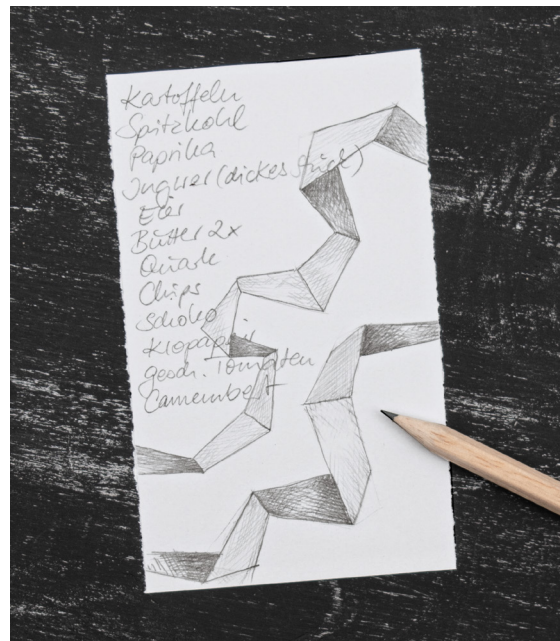 Kartoffeln
Spitzkohl
Paprika
Ingwer (dickes Stück)
Eier
Butter 2x
Quark
Chips
Schoko
Klopapier
gesch. Tomaten
Camembert